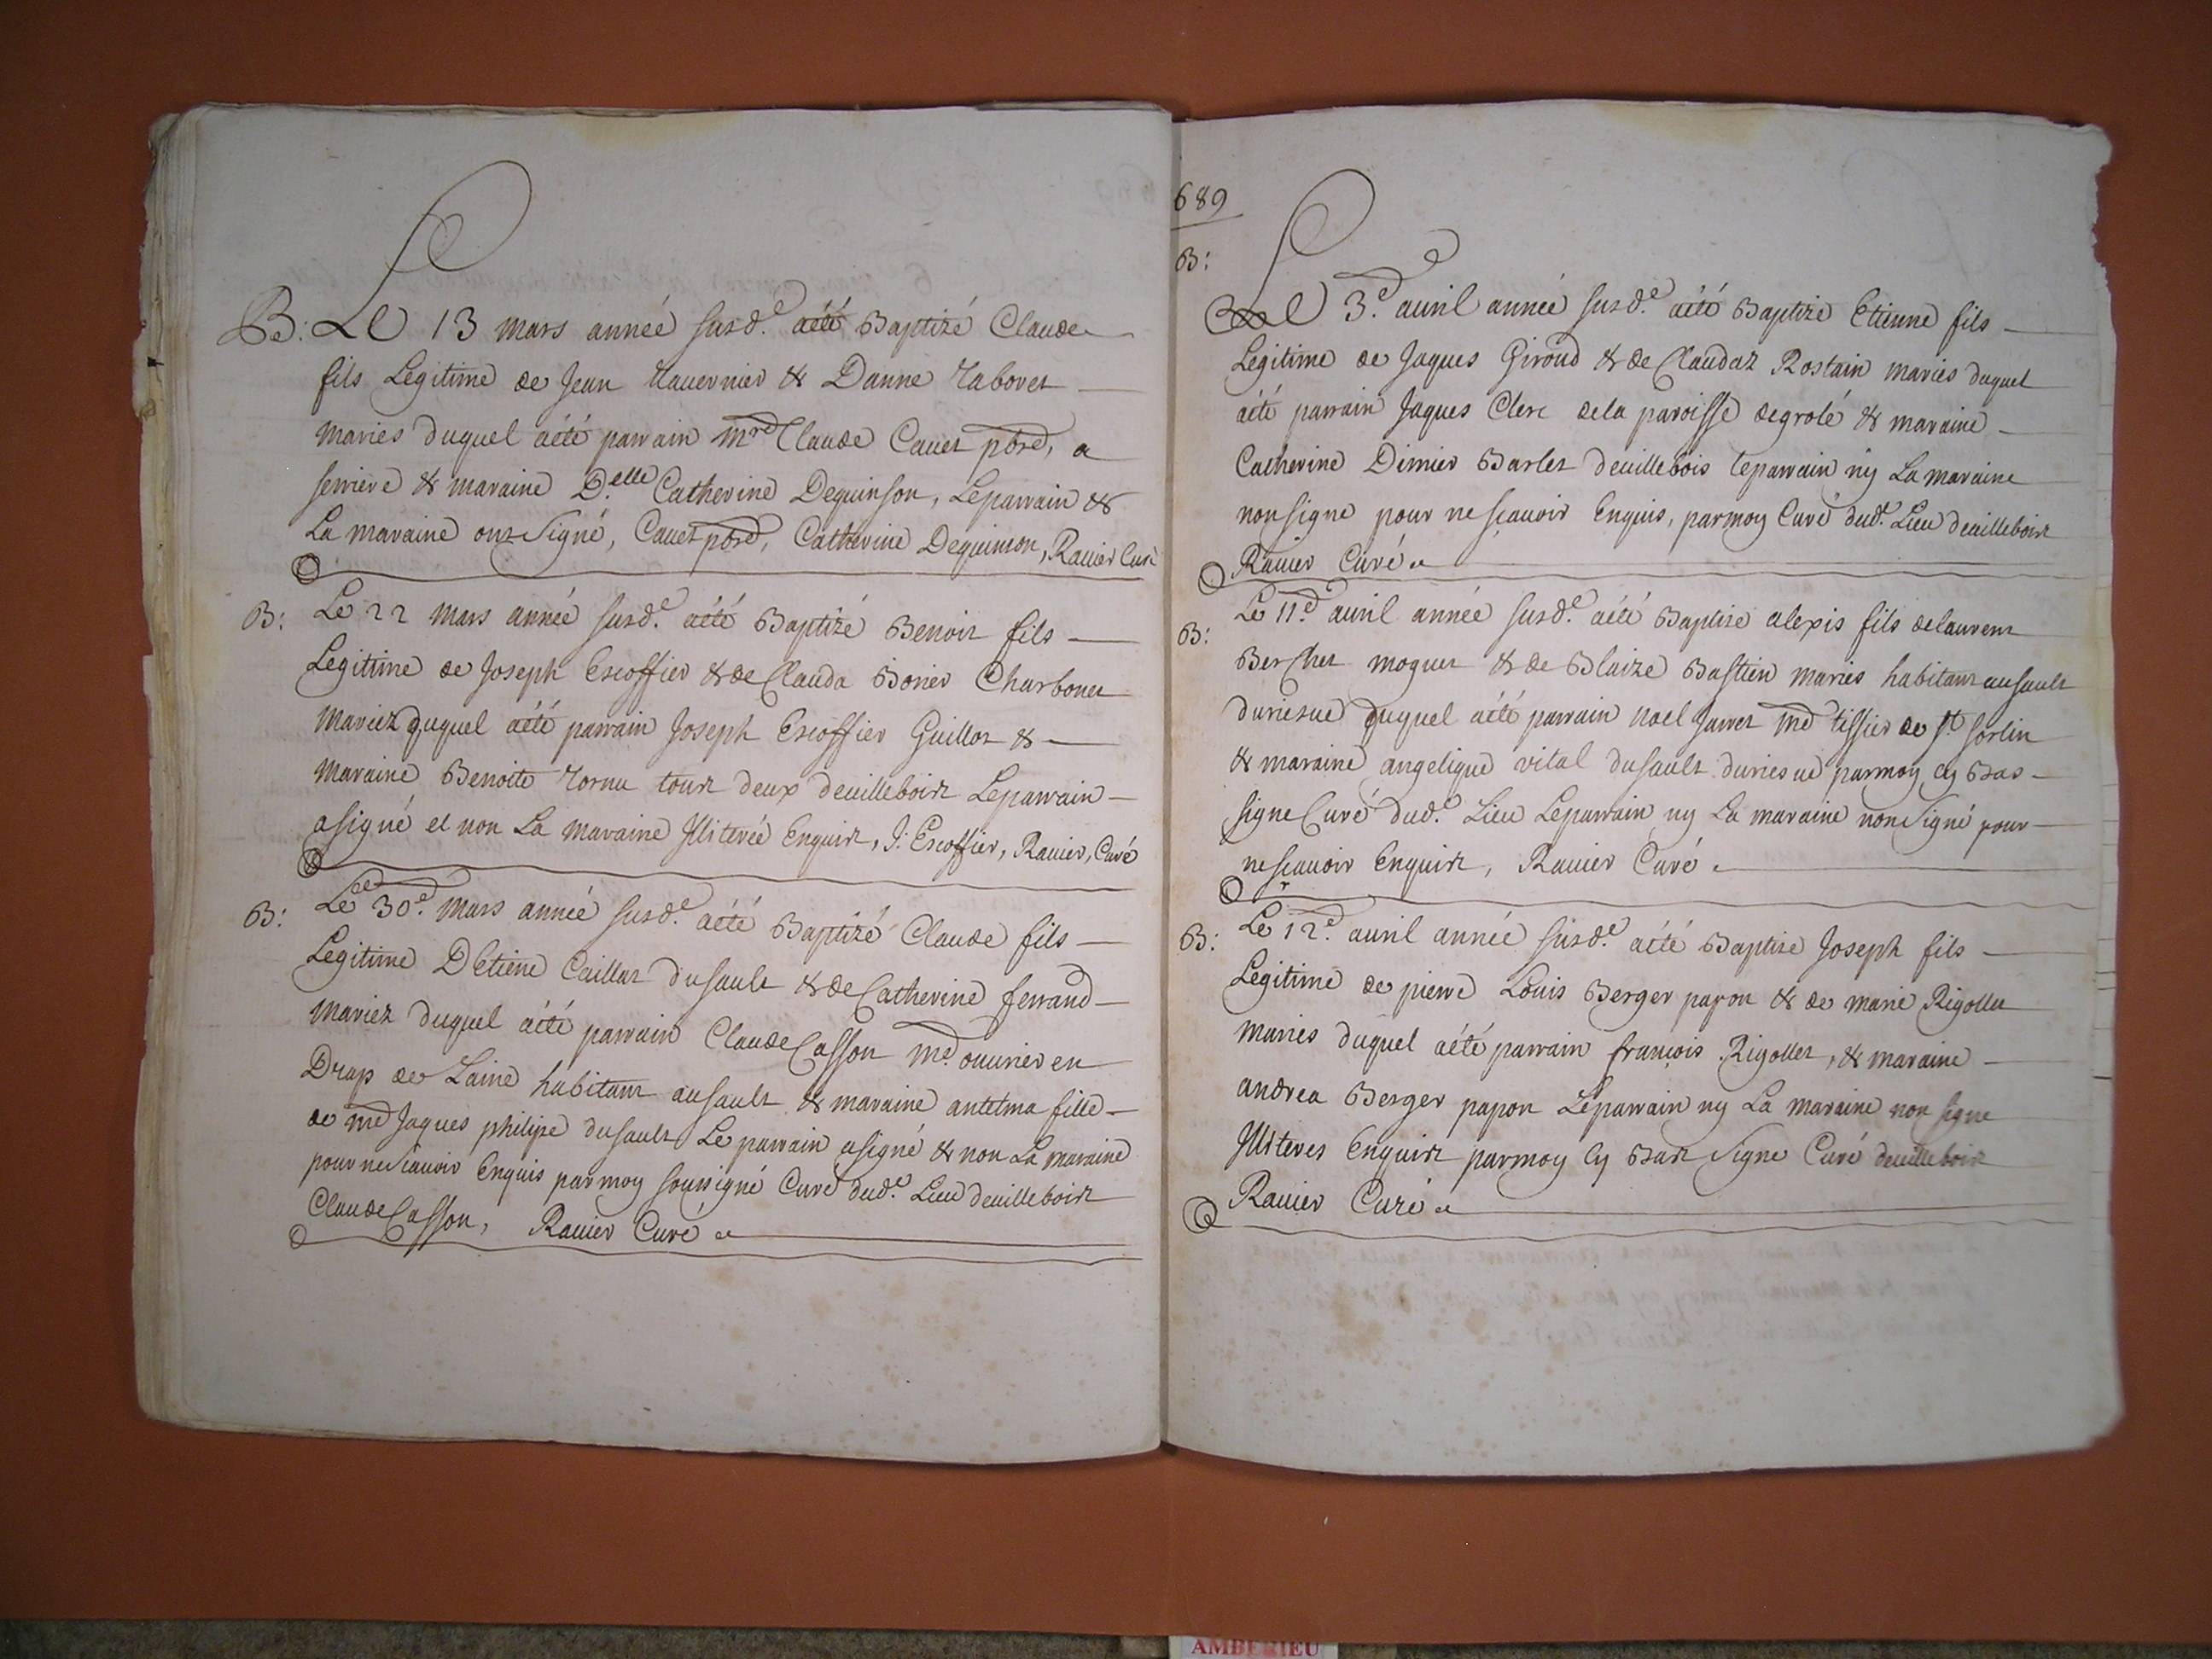 B: Le 13 mars année susd.e aété Baptizé Claude
fils Legitime de Jean Tauernier & Danne Taboret
mariés duquel aété parrain mre Claude Cauet pbre, a
serriere & maraine D.elle Catherine Dequinson, Leparrain &
La maraine ont Signé, Cauet pbre, Catherine Dequinson, Rauier Curé
B: Le 22 mars année susd.e aété Baptizé Benoit fils
Legitime de Joseph Escoffier & de Clauda Bonier Charbonet
Mariez duquel aété parrain Joseph Escoffier Guillot &
Maraine Benoite Tornu tous deux deuillebois Leparrain
asigné et non La maraine Illiterée Enquise, J: Escoffier, Rauier, Curé
B: Le 30e. Mars année susd.e aété Baptizé Claude fils
Legitime DEtiene Caillat dusault & de Catherine ferrand
mariez duquel aété parrain Claude Casson md. ouurier en
Drap de Laine habitant ausault & maraine antelma fille
de md Jaques philipe dusault Le parrain asigné & non La maraine
pour nesçauoir Enquis parmoy soussigné Curé dud.e Lieu deuillebois
Claude Casson, Rauier Curé
689
B: Le 3.e auril année susd.e aété Baptizé Etienne fils
Legitime de Jaques Giroud & de Claudaz Rostain mariés duquel
aété parrain Jaques Clerc dela paroisse degrolé & maraine
Catherine Dimier Barlet deuillebois leparrain ny La maraine
nonsigné pour ne sçauoir Enquis, parmoy Curé dud.e Lieu deuillebois
Rauier Curé
B: Le 11e auril année susd.e aété Baptisé alexis fils delaurent
Berchet moguet & de Blaize Bastien mariés habitant ausault
duriesue duquel aété parrain noel Jarret md tissier de st sorlin
& maraine angelique vital dusault duriesue parmoy cy Bas
signé Curé dud.e Lieu Leparrain ny La maraine non Signé pour
nesçauoir Enquis, Rauier Curé
B: Le 12e. auril année susd.e aété Baptisé Joseph fils
Legitime de pierre Louis Berger papon & de marie Rigollet
Mariés duquel aété parrain françois Rigollet, & maraine
andrea Berger papon Leparrain ny La maraine non signé
Illiterés Enquis parmoy Cy Bas Signé Curé deuillebois
Rauier Curé
AMBERIEU